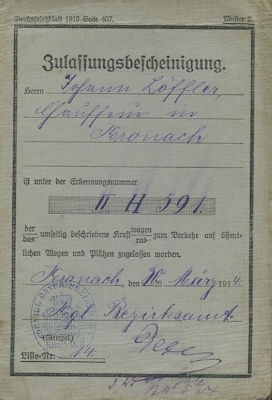 Reichsgesetzblatt 1910 Seite 407. Muster 2.
Zulassungsbescheinigung.
Herrn Johann Löffler,
Chauffeur in
Kronach
ist unter der Erkennungsnummer
II H 591.
der/das umseitig beschriebene Kraftwagen/rad zum Verkehr auf öffent-
lichen Wegen und Plätzen zugelassen worden.
Kronach, den 20. März 1914.
Kgl. Bezirksamt
(Stempel)
Liste-Nr. 14.